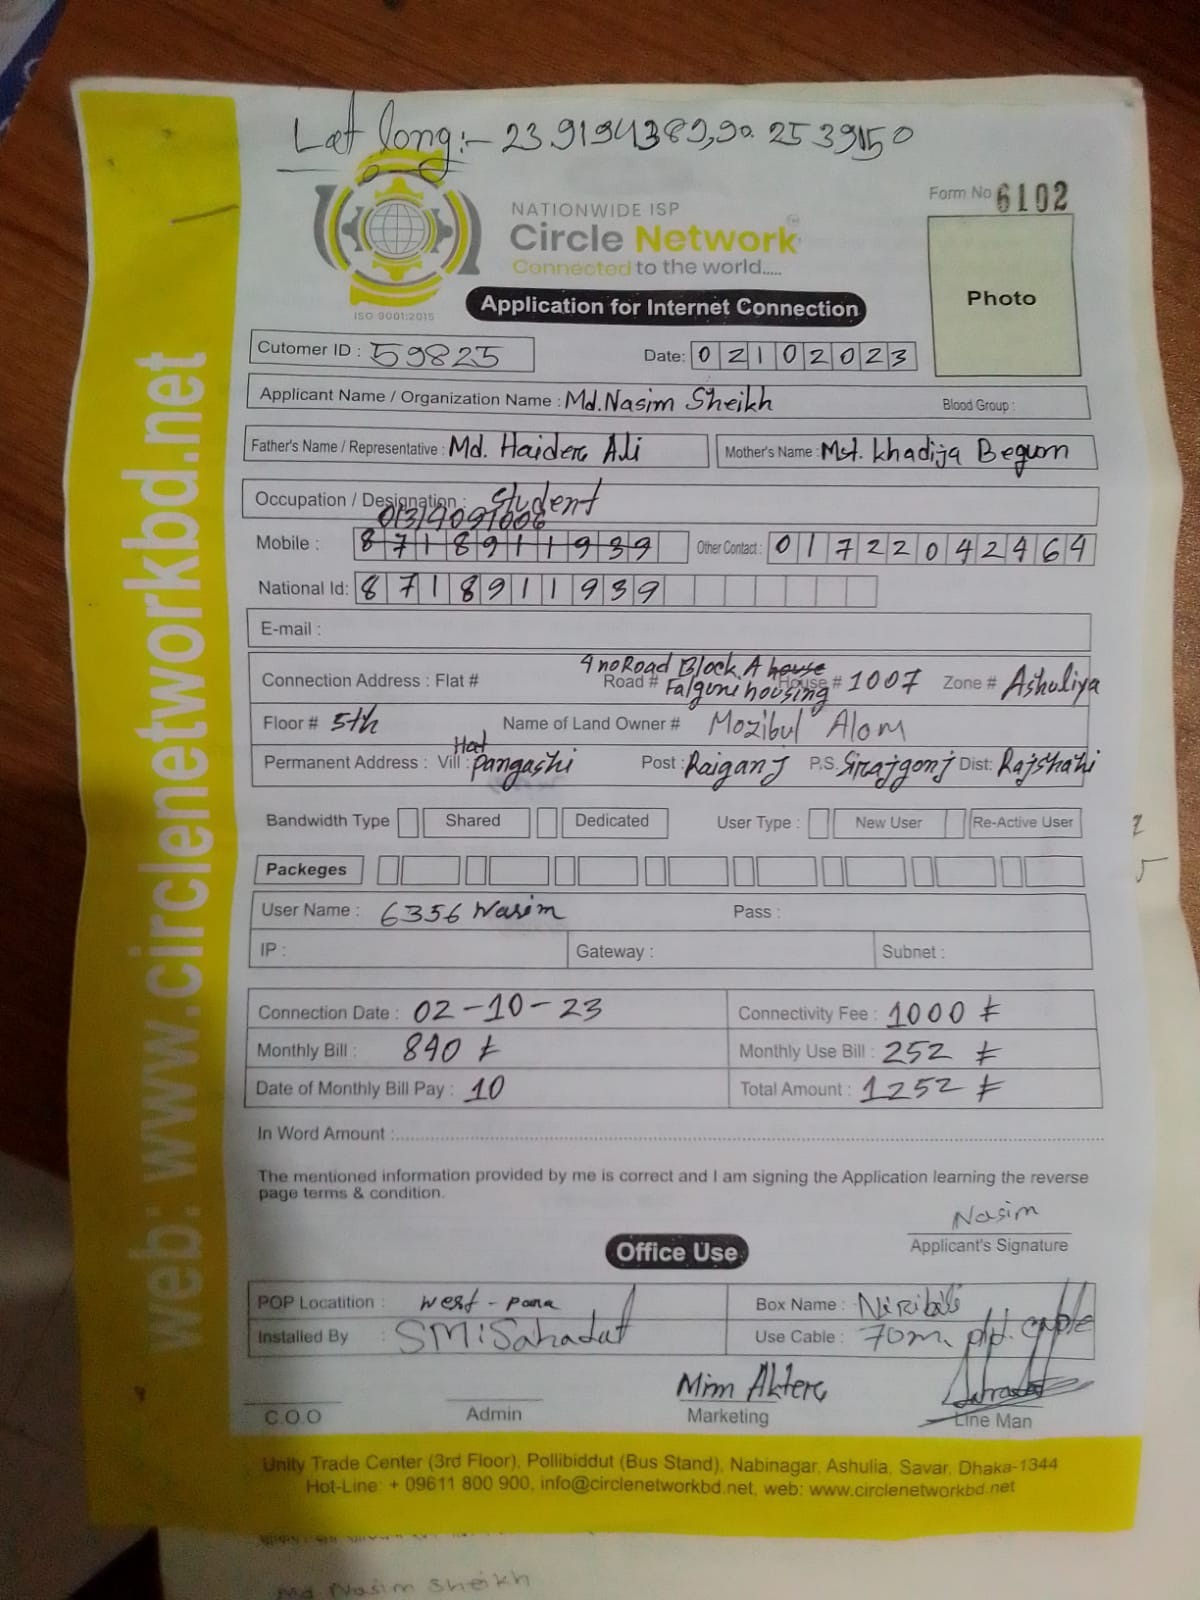 Lat long:- 23.9194389,90.2539150
Form No 6102
NATIONWIDE ISP
Circle Network
Connected to the world.....
ISO 9001:2015
Application for Internet Connection
Photo
Cutomer ID : 59825 Date: 02102023
Applicant Name / Organization Name : Md.Nasim Sheikh Blood Group :
Father's Name / Representative : Md. Haider Ali Mother's Name : Mst. Khadija Begum
Occupation / Designation : Student
Mobile : 8718911939 Other Contact : 01722042464
National Id: 8718911939
E-mail :
4 no Road Block, A house
Connection Address : Flat # Road # Falguni housing House # 1007 Zone # Ashuliya
Floor # 5th Name of Land Owner # Mozibul Alom
Hat
Permanent Address : Vill : Pangashi Post : Raiganj P.S. Sirajgonj Dist: Rajshahi
Bandwidth Type Shared Dedicated User Type : New User Re-Active User
Packeges
User Name : 6356 Nasim Pass :
IP : Gateway : Subnet :
Connection Date : 02-10-23 Connectivity Fee : 1000 ৳
Monthly Bill : 840 ৳ Monthly Use Bill : 252 ৳
Date of Monthly Bill Pay : 10 Total Amount : 1252 ৳
In Word Amount :
The mentioned information provided by me is correct and I am signing the Application learning the reverse
page terms & condition.
Nasim
Applicant's Signature
Office Use
POP Locatition : West-para Box Name : Niribili
Installed By : SM:Sahadat Use Cable : 70m, old. cable
Mim Akter Sahadat
C.O.O Admin Marketing Line Man
Unity Trade Center (3rd Floor), Pollibiddut (Bus Stand), Nabinagar, Ashulia, Savar, Dhaka-1344
Hot-Line: + 09611 800 900, info@circlenetworkbd.net, web: www.circlenetworkbd.net
web: www.circlenetworkbd.net
Md Nasim Sheikh